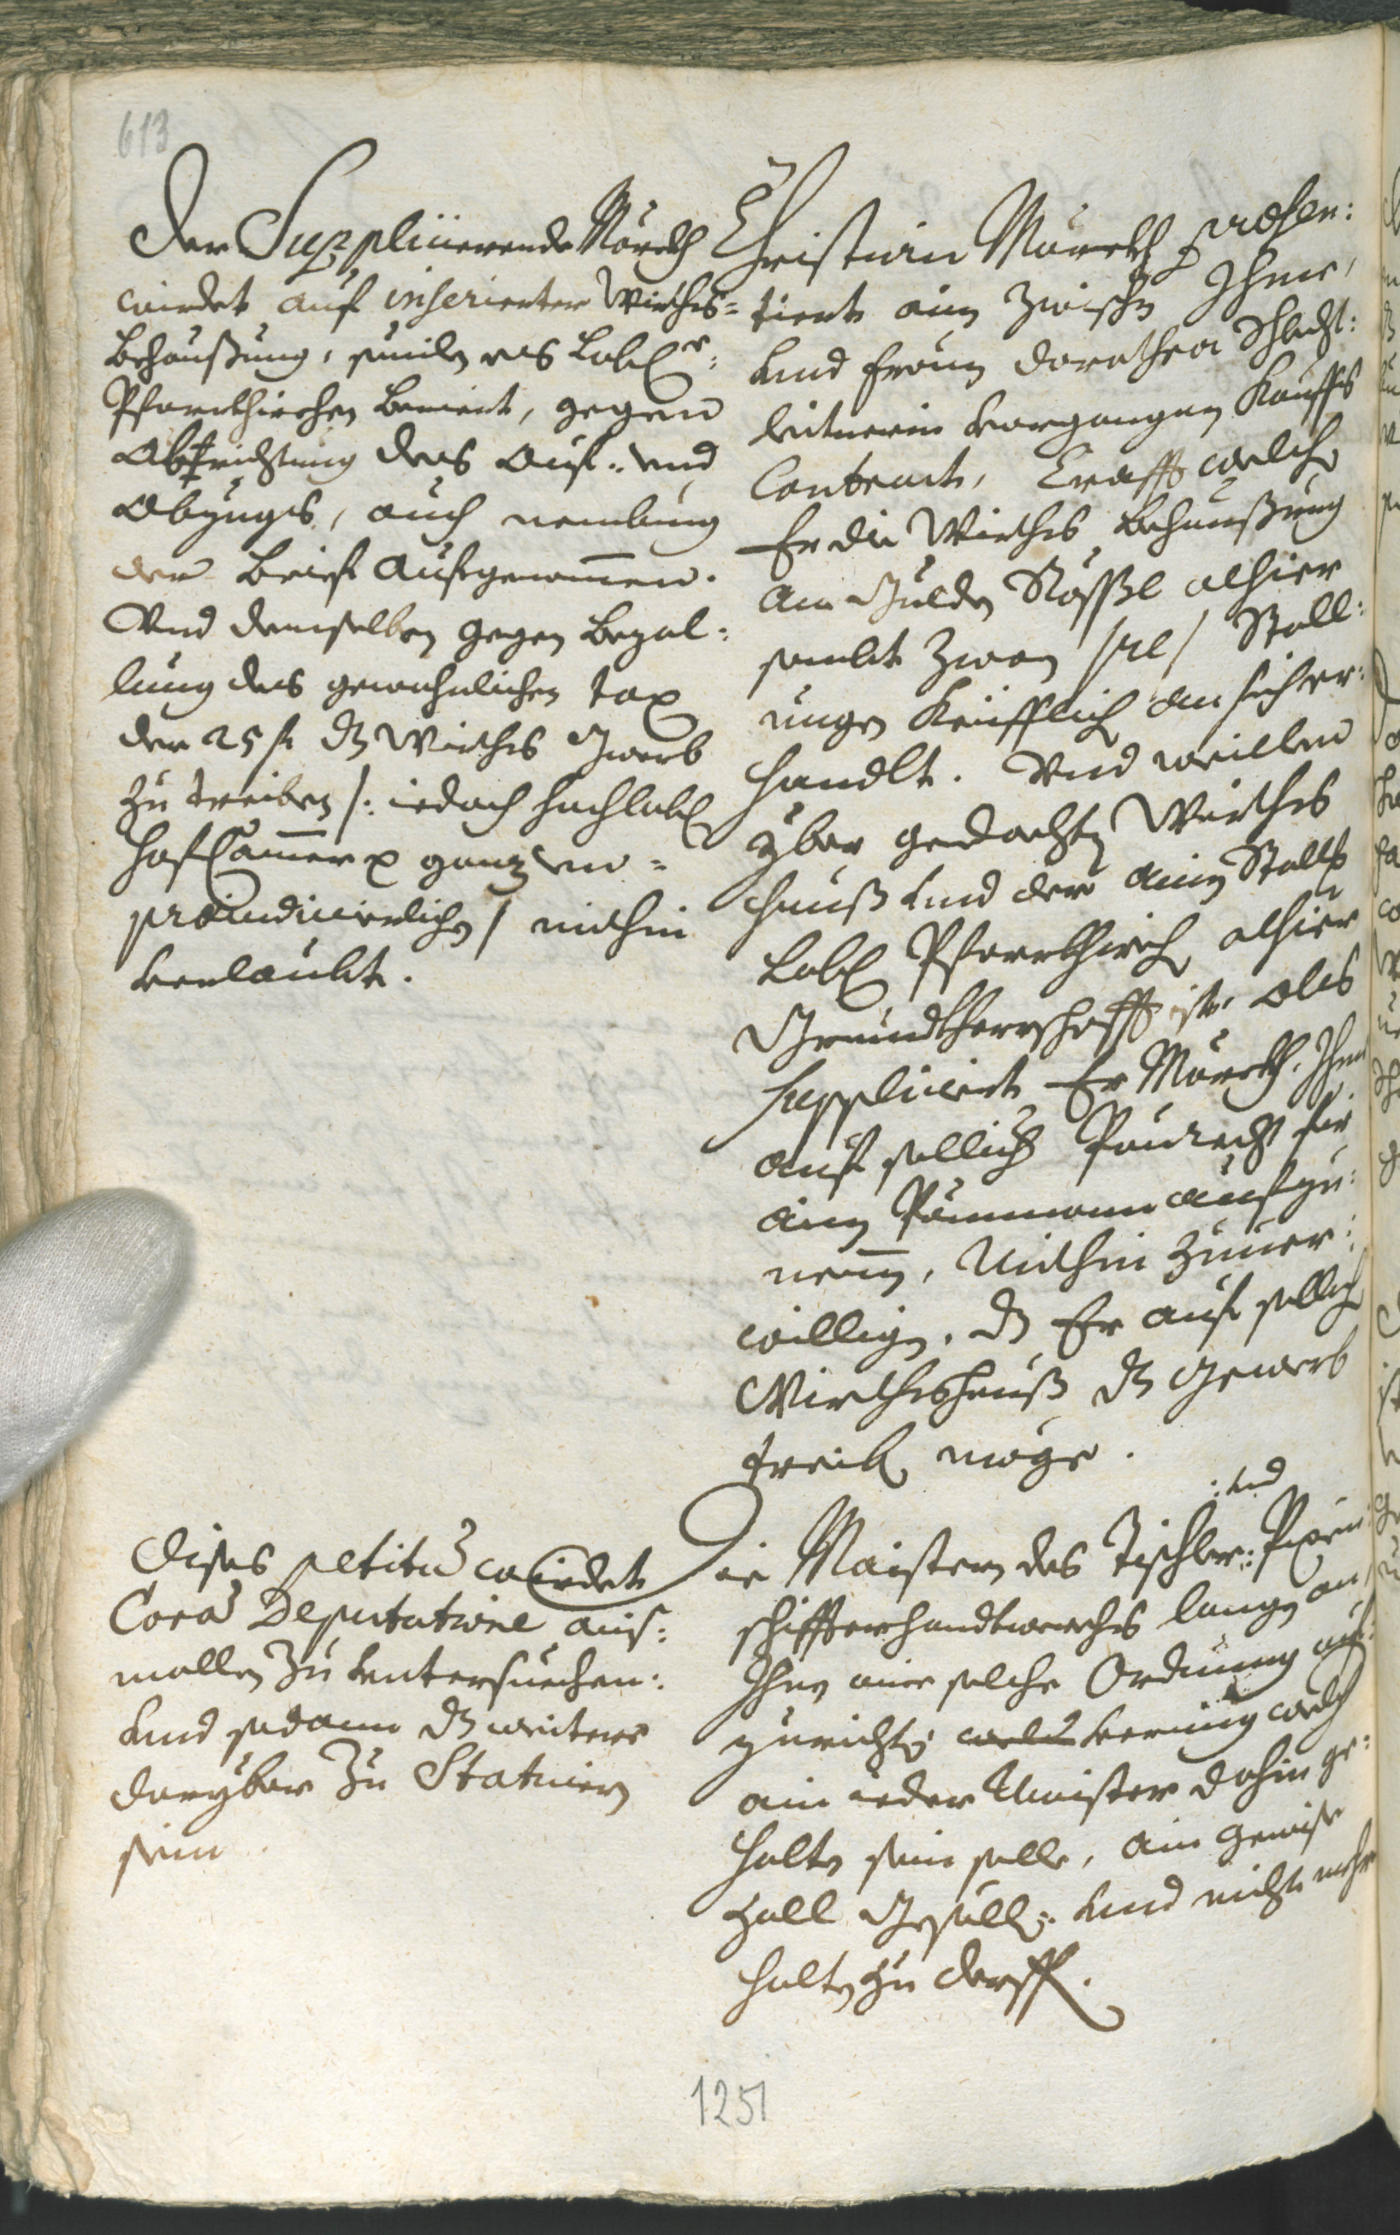 613
Der Supplicierende Märckh
wirdet auf inserierter Wirths=
behaußung, sovil es Lobl:r
Pfarrkhirchen beriert, gegen
Abrichtung des Auf= und
Abzugs, auch nembung
der brief aufgenommen.
Und demselben gegen bezal=
lung des gewohnlichen tax
der 25 fl. dz Wirths Gwerb
zu treiben /: iedoch hochlobl
Hof Cammer ganz un=
praeiudicierlichen / mithin
verlaubt.
Christian Märckh praesen:
tiert ain zwischen Ihme,
und Frauen Dorothea Schlecht:
leitnerin vorgangnen Kauffs
Contract, Crafft welchen
Er die Wirths behaußung
am Gulden Rössl alhier
sambt zwen /sal:/ Stall:
ungen keufflich an sich er:
handlt. Und weillen
yber gedachten Wirths
hauß und der ainen Stallß
Lobl Pfarrkhirch alhier
Grundtherrschafft ist, als
supplicirt Er Märckh, Ihne
auf sollich Paurecht für
ainen Paumann aufzu:
nemen, Mithin zuuer:
willigen, dz Er auf sollichen
Wirthshauß dz Gewerb
treiben möge.
Dises petitum wirdet
Coram Deputatione auß:
mallen zu untersuechen:
und sodann dz weitere
daryber zu Statuiern
sein.
: und
Die Maistern des Tischler: Pixen:
schiffterhandtwerchs langen an,
Ihnen aine solche Ordnung auf:
zurichten, vermög welcher
ain ieder Maister dahin ge:
halten sein solle, ain gewise
Zall Gesellen: und nicht mehr
halten zu derffen.
1251